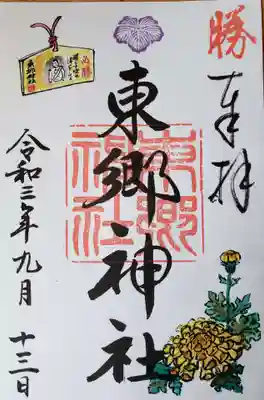 勝
奉拝
東郷神社
東郷神社
令和三年九月
十三日
必勝
東郷神社